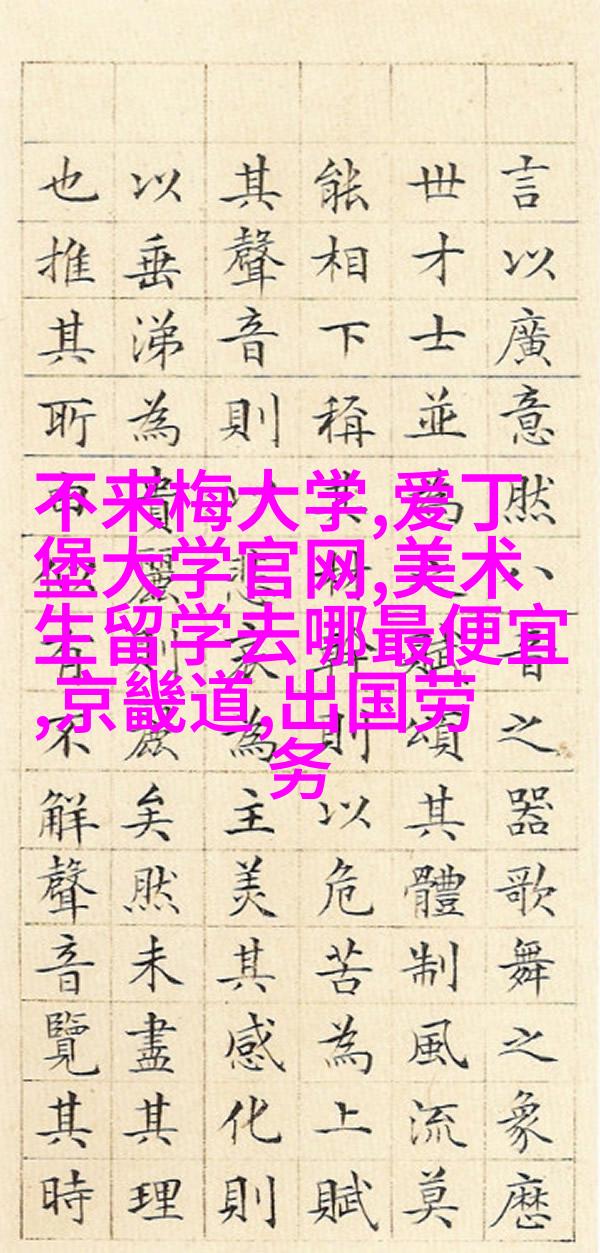 不来梅大学,爱丁
堡大学官网,美术
生留学去哪最便宜
,京畿道,出国劳
务
言以廣意然八音之器歌舞之象歷
世才士並為賦頌其體制風流莫
能相下稱其材幹則以危苦為上賦
其聲音則悲哀為主美其感化則
以垂涕為貴麗則麗矣然未盡其理
也推其所由似有不解聲音覽其時